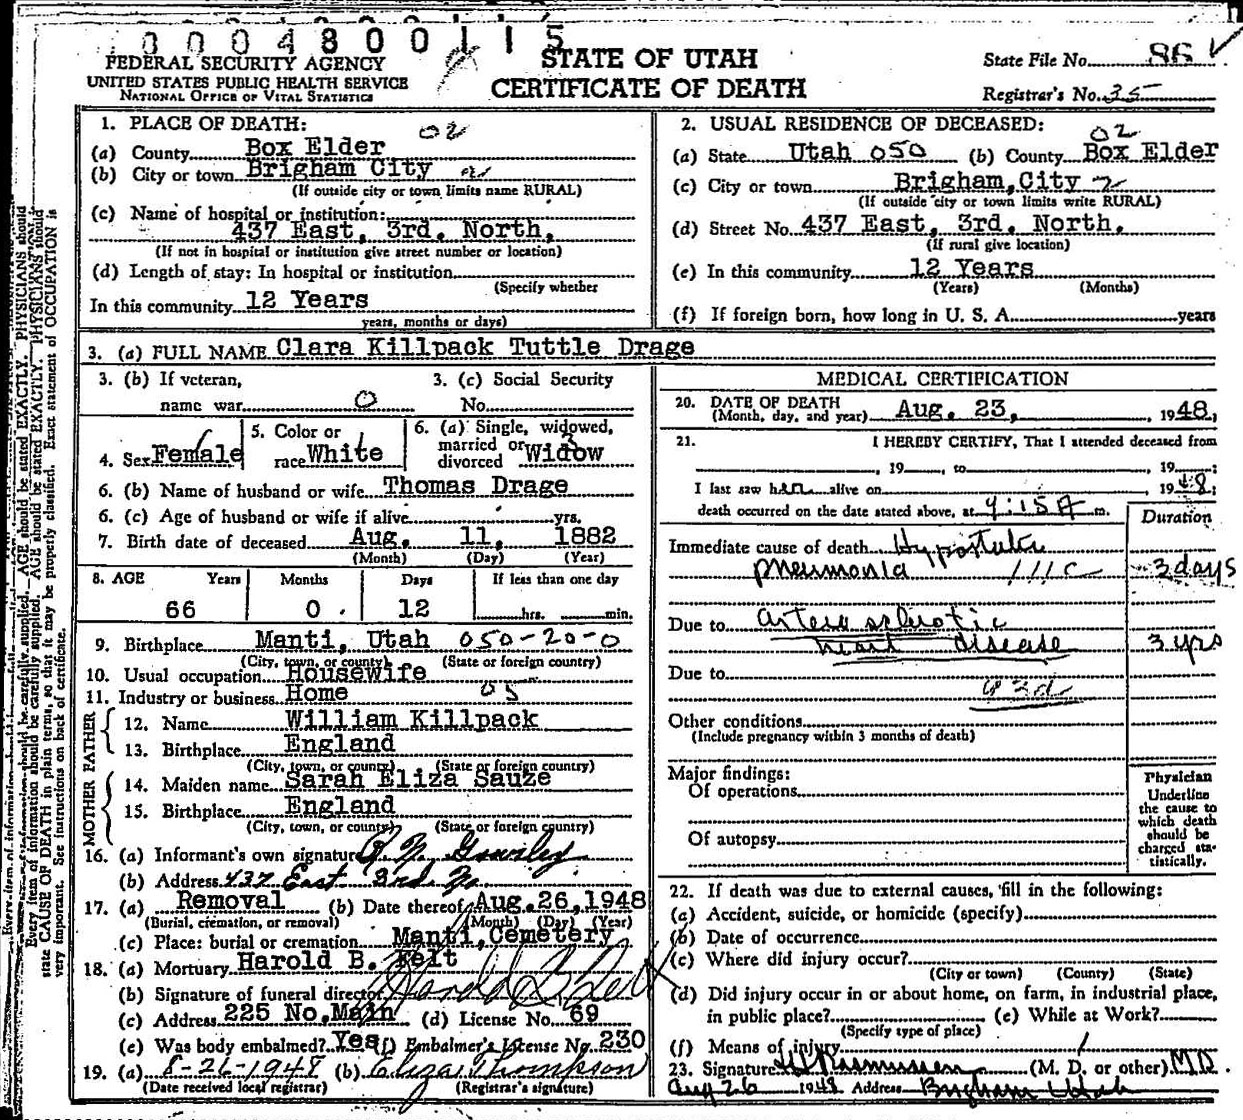 0004800115
FEDERAL SECURITY AGENCY
UNITED STATES PUBLIC HEALTH SERVICE
NATIONAL OFFICE OF VITAL STATISTICS
STATE OF UTAH
CERTIFICATE OF DEATH
State File No. 86 ✓
Registrar's No. 35
1. PLACE OF DEATH: 02
(a) County Box Elder
(b) City or town Brigham City
(If outside city or town limits name RURAL)
(c) Name of hospital or institution:
437 East, 3rd. North,
(If not in hospital or institution give street number or location)
(d) Length of stay: In hospital or institution
(Specify whether
In this community 12 Years
years, months or days)
2. USUAL RESIDENCE OF DECEASED: 02
(a) State Utah 050 (b) County Box Elder
(c) City or town Brigham, City 2
(If outside city or town limits write RURAL)
(d) Street No. 437 East, 3rd. North.
(If rural give location)
(e) In this community 12 Years
(Years) (Months)
(f) If foreign born, how long in U. S. A. years
3. (a) FULL NAME Clara Killpack Tuttle Drage
3. (b) If veteran,
name war 0
3. (c) Social Security
No.
4. Sex Female
5. Color or
race White
6. (a) Single, widowed,
married or
divorced Widow 3
6. (b) Name of husband or wife Thomas Drage
6. (c) Age of husband or wife if alive yrs.
7. Birth date of deceased Aug. 11, 1882
(Month) (Day) (Year)
8. AGE Years Months Days If less than one day
66 0 12 hrs. min.
9. Birthplace Manti, Utah 050-20-0
(City, town, or county) (State or foreign country)
10. Usual occupation Housewife
11. Industry or business Home 05
FATHER
12. Name William Killpack
13. Birthplace England
(City, town, or county) (State or foreign country)
MOTHER
14. Maiden name Sarah Eliza Sauze
15. Birthplace England
(City, town, or county) (State or foreign country)
16. (a) Informant's own signature
(b) Address 437 East 3rd. No.
17. (a) Removal (b) Date thereof Aug. 26, 1948
(Burial, cremation, or removal) (Month) (Day) (Year)
(c) Place: burial or cremation Manti, Cemetery
18. (a) Mortuary Harold B. Felt
(b) Signature of funeral director Harold B Felt
(c) Address 225 No, Main (d) License No. 69
(e) Was body embalmed? Yes (f) Embalmer's License No. 230
19. (a) 8-26-1948 (b) Eliza Thompson
(Date received local registrar) (Registrar's signature)
MEDICAL CERTIFICATION
20. DATE OF DEATH
(Month, day, and year) Aug. 23, 1948,
21. I HEREBY CERTIFY, That I attended deceased from
, 19 , to , 19 ;
I last saw her alive on 1948;
death occurred on the date stated above, at 9:15 A m.
Duration
Immediate cause of death Hypostatic
pneumonia 111c 3 days
Due to arteriosclerotic
heart disease 3 yrs
Due to
93d
Other conditions
(Include pregnancy within 3 months of death)
Major findings:
Of operations
Of autopsy
Physician
Underline
the cause to
which death
should be
charged sta-
tistically.
22. If death was due to external causes, fill in the following:
(a) Accident, suicide, or homicide (specify)
(b) Date of occurrence
(c) Where did injury occur?
(City or town) (County) (State)
(d) Did injury occur in or about home, on farm, in industrial place,
in public place? (e) While at Work?
(Specify type of place)
(f) Means of injury
23. Signature Rasmussen (M. D. or other) M.D.
Aug 26 1948 Address Brigham Utah
Every item of information should be carefully supplied. AGE should be stated EXACTLY. PHYSICIANS should
state CAUSE OF DEATH in plain terms, so that it may be properly classified. Exact statement of OCCUPATION is
very important. See instructions on back of certificate.